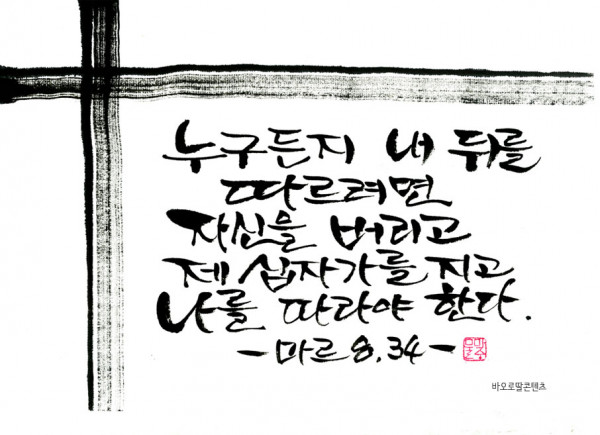 누구든지 내 뒤를
따르려면
자신을 버리고
제 십자가를 지고
나를 따라야 한다.
-마르 8,34-
바오로딸콘텐츠